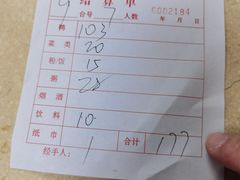 结算单
台号 7 人数 0002184
年 月 日
鹅 103
菜类 20
粉饭 15
粥 28
烟酒
饮料 10
纸巾 1 合计 177
经手人: